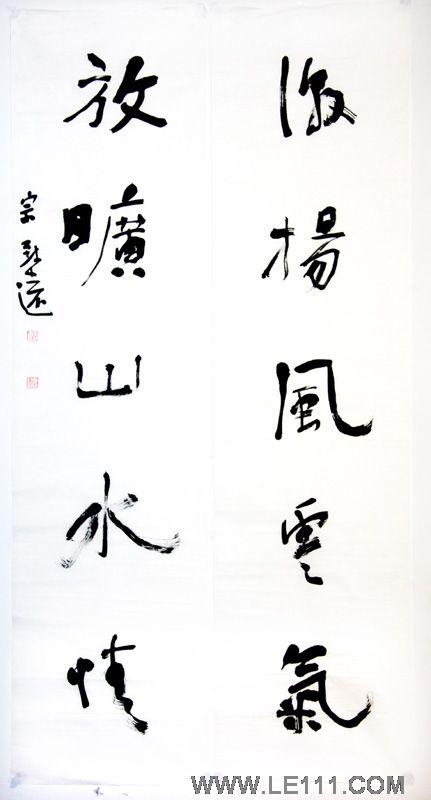 激揚風雲氣
放曠山水情
宗
WWW.LE111.COM